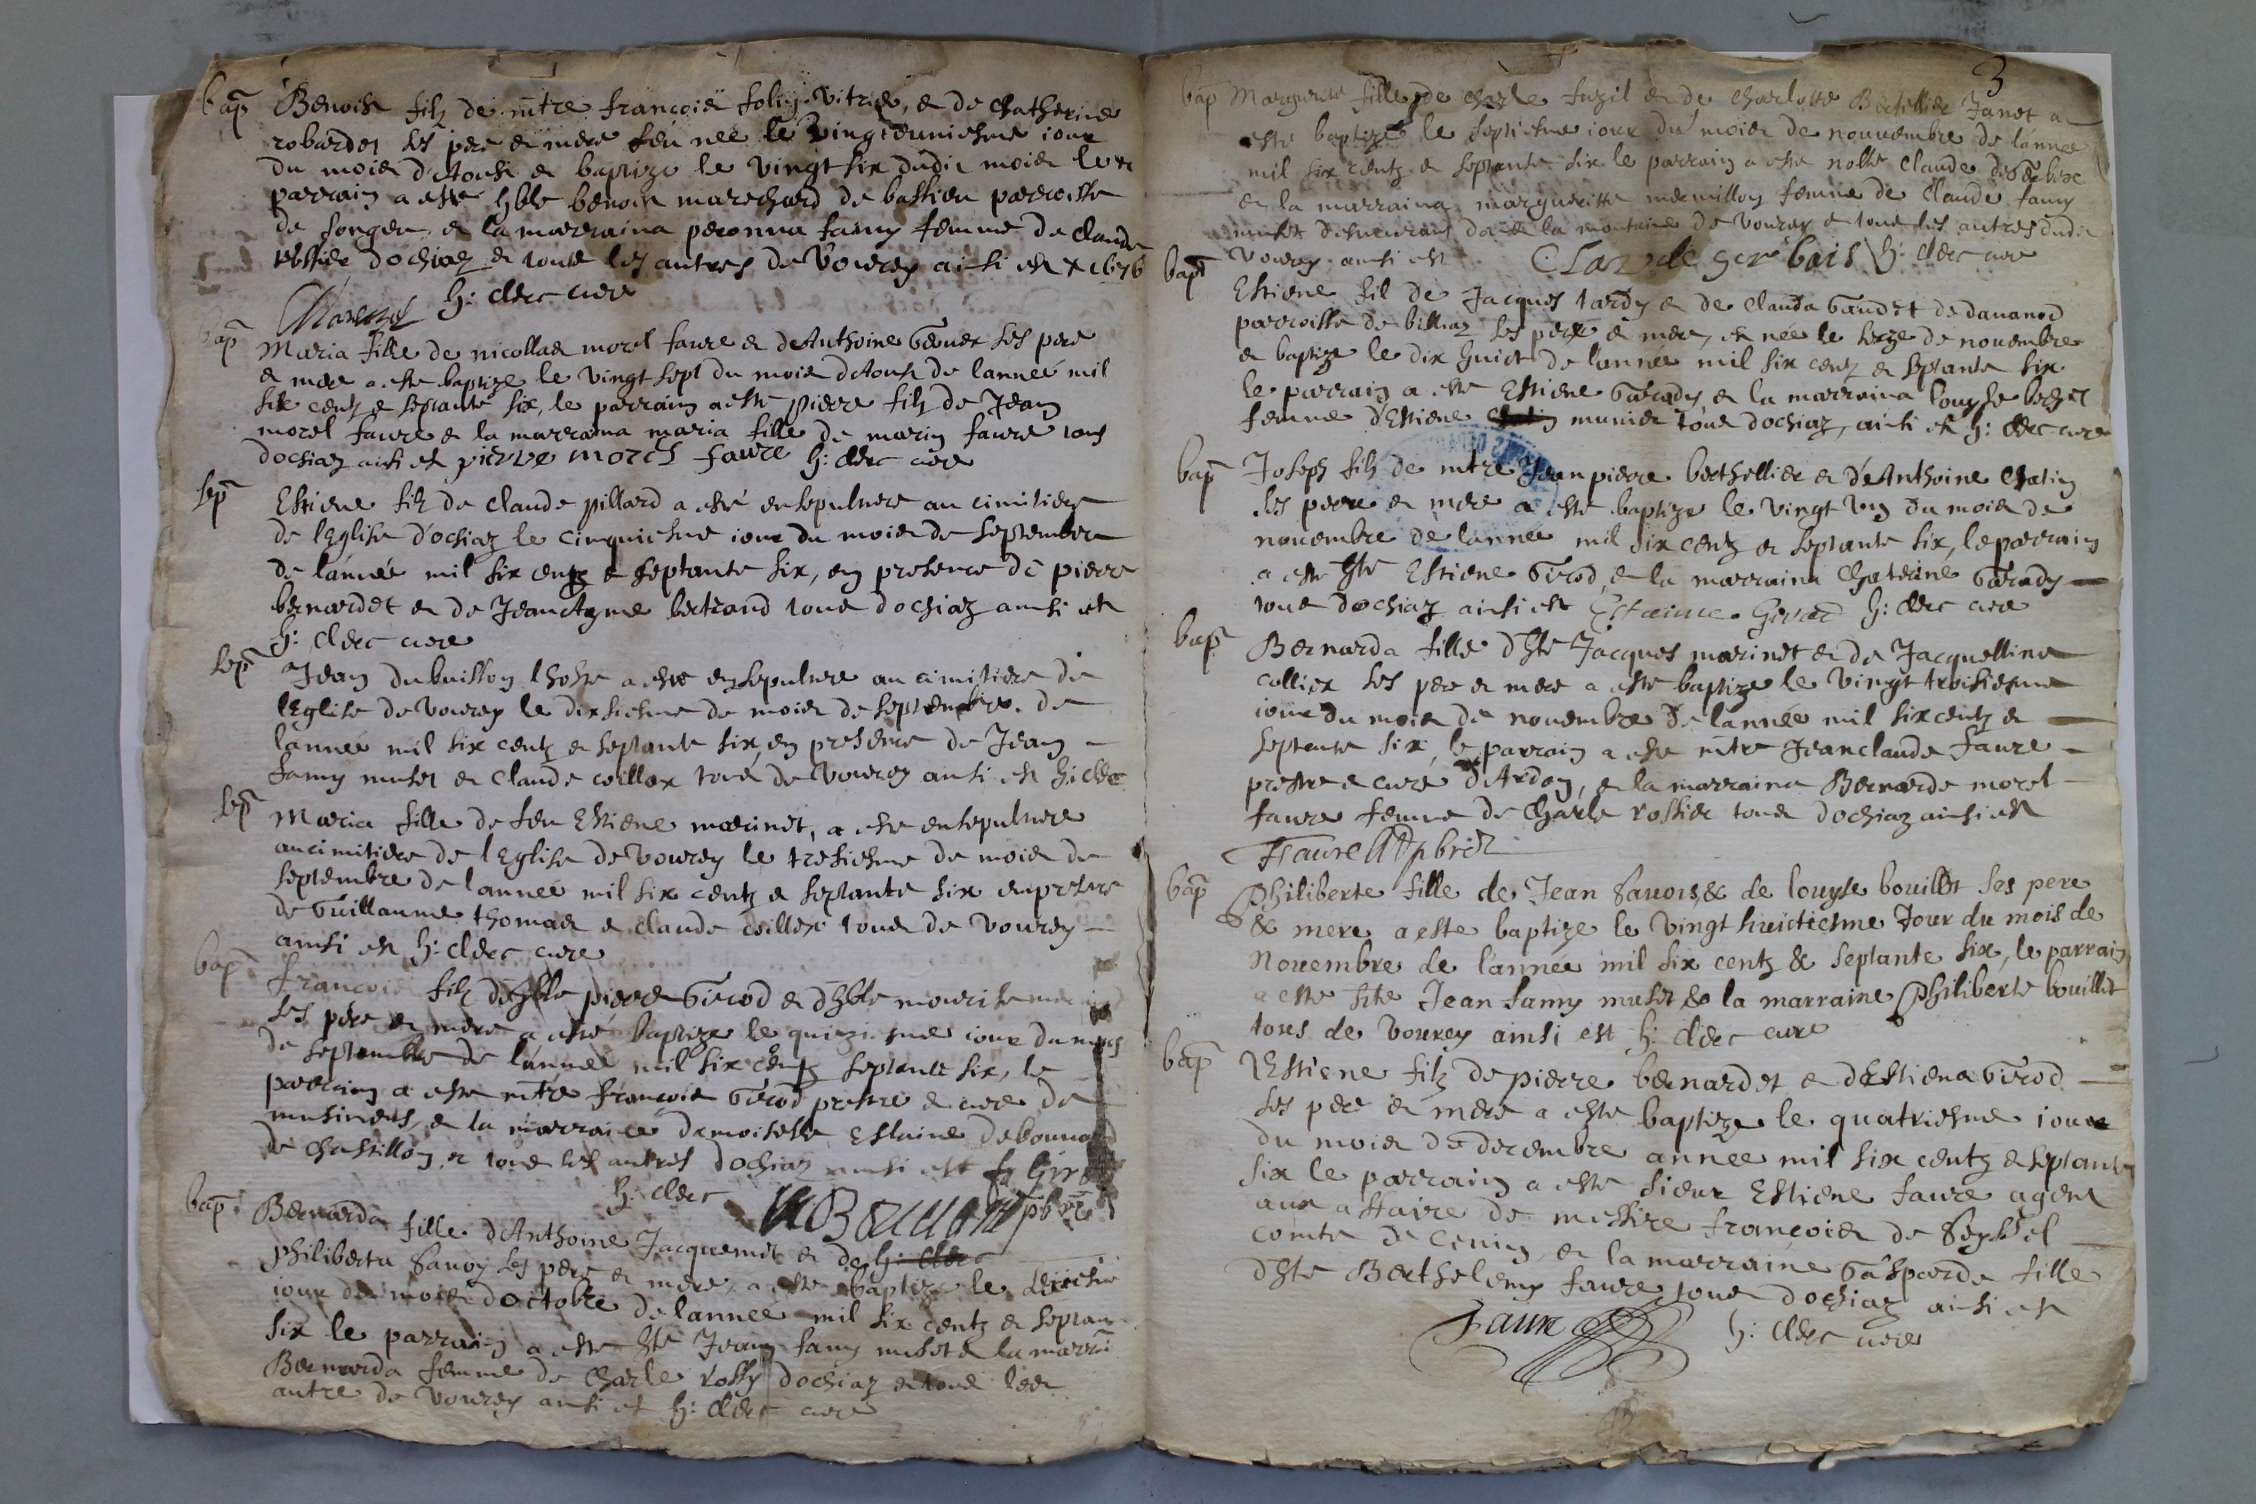 bap Benoist filz de mtre francois foliy vitrie, et de Chatherine
robardet ses pere et mere née le vingteuniesme iour
du moies d'Aoust et baptize le vingt six dudit moies le
parrain a este hble benoist marechard de bastieu parroisse
de songeu et la marraina peronna famy femme de claude
rossier dochiaz et tous les autres de Vourey ainsi est 1676
h: Clerc cure
bap Maria fille de nicollas morel faure et d'Anthoine ses pere
et mere a este baptize le vingt sept du moies d'Aoust de lannée mil
six centz et septante six, le parrain a este pierre filz de Jean
morel faure et la marraina maria fille de marin faure tous
dochiaz ainsi est pierre morel faure h: Clerc cure
sep Estiene filz de Claude pillard a esté ensepulture au cimitiere
de l'Eglise d'ochiaz le cinquiesme iour du moies de septembre
de lannée mil six centz et septante six, en presence de pierre
bernardet et de Jeanclayme bertrand tous dochiaz ainsi est
h: Clerc cure
sep Jean dubuisson lhoste a este ensepulture au cimitiere de
l'Eglise de Vourey le dixsiesme de moies de septembre de
lannée mil six centz et septante six, en presence de Jean
famy muset et Claude coillox tous de Vourey ainsi est h: Clerc
sep Maria fille de feu Estiene marinet, a este ensepulture
au cimitiere de l'Eglise de Vourey le tresiesme de moies de
septembre de lannée mil six centz et septante six en presence
de Guillaume thomas et claude coillox tous de vourey
ainsi est h: Clerc cure
bap francois filz d'hble pierre Girod et d'hble mourise
ses pere et mere a esté baptize le quinziesme iour du moys
de septembre de lannée mil six centz septante six, le
parrain a este mtre francois Girod prestre et cure de
musinens, et la marraine damoiselle Estaine debonna
de Chastillon et tous les autres dochiaz ainsi est
h: Clerc pbre
bap Bernarda fille d'Anthoine Jacquemet et de h: Clerc
philiberta Sauoy ses pere et mere, a este baptize le
iour de moies d'octobre de lannee mil six centz et septan
six le parrain a este hte Jean famy muset et la marrai
Bernarda femme de Charle rossy dochiaz et tous les
autre de Vourey ainsi est h: Clerc cure
3
bap Marguerite fille de Charle fuzil et de Charlotte Berthellier Janet a
este baptizé le septiesme iour du moies de nouuembre de lannee
mil six centz et septante six le parrain a este noble Claude de Gerbaix
et la marraina margueritte mermillon femme de Claude famy
muset demeurant de la montaine de Vourey et tous les autres dudit
Vourey ainsi est Claude gerbais h: Clerc cure
bap Estiene fil de Jacques tardy et de Clauda Gaudet de dauanod
parroisse de billiaz ses pere et mere, est née le seze de nouembre
et baptize le dix huict de lannee mil six centz et septante six
le parrain a este Estiene Garady et la marraina Louyse
femme d'Estiene munier tous dochiaz, ainsi est h: Clerc cure
bap Joseph filz de mtre Jean pierre berthellier et d'Anthoine Chatin
ses pere et mere a este baptize le vingt un du moies de
nouembre de lannée mil six centz et septante six, le parrain
a este hte Estiene Girod, et la marraina Chaterine Garady
tous dochiaz ainsi est Estainne Girod h: Clerc cure
bap Bernarda fille d'hte Jacques marinet et de Jacquelline
collier ses pere et mere a este baptize le vingt troisiesme
iour du moies de nouembre de lannée mil six centz et
septante six, le parrain a este mtre Jeanclaude faure
prestre et curé d'Ardon, et la marraina Bernarde morel
faure femme de Charle rossier tous dochiaz ainsi est
Faure pbre
bap Philiberte fille de Jean Sauois, & de louyse bouillet ses pere
& mere a este baptize le vingt huictiesme Jour du mois de
Nouembre de lannée mil six centz & septante six, le parrain
a este hte Jean famy muset & la marraine Philiberte bouillet
tous de Vourey ainsi est h: Clerc cure
bap Estiene filz de pierre bernardet et d'Estiena Girod
ses pere et mere a este baptize le quatriesme iour
du moies de decembre annee mil six centz et septante
six le parrain a este sieur Estiene faure agent
aux affaire de messire francois de Seyssel
comte de et la marraine Gasparde fille
d'hte Berthelemy faure tous dochiaz ainsi est
Faure h: Clerc cure